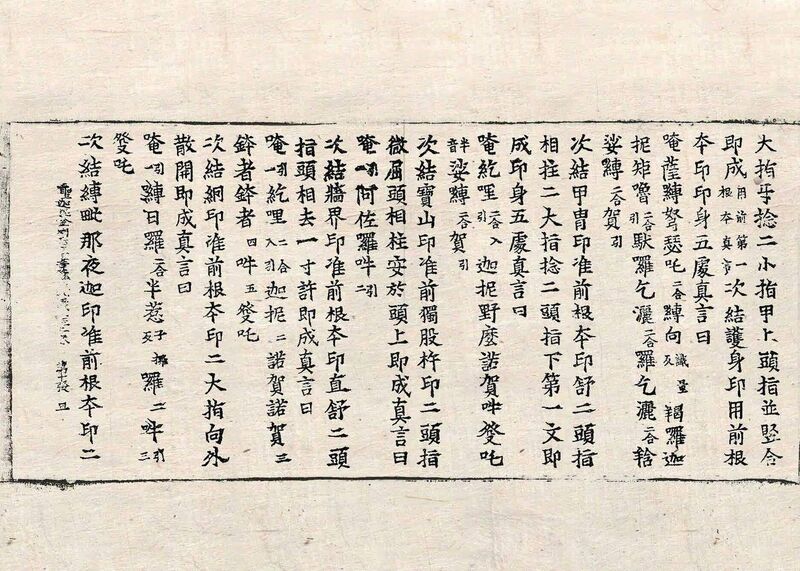 大指平捻二小指甲上頭指並竪合
即成用前第一根本真言次結護身印用前根
本印印身五處真言曰
唵薩縛弩瑟吒二合縛向識量反羯羅迦
抳矩嚕二合引馱羅乞灑二合羅乞灑二合𤙖
娑縛二合賀引
次結甲冑印准前根本印舒二頭指
相拄二大指捻二頭指下第一文即
成印身五處真言曰
唵紇哩二合引入迦抳野麼諾賀吽發吒
半音娑縛二合賀引
次結寶山印准前獨股杵印二頭指
微屈頭相柱安於頭上即成真言曰
唵一引阿佐羅吽二引
次結牆界印准前根本印直舒二頭
指頭相去一寸許即成真言曰
唵一引紇哩二合入引迦抳二諾賀諾賀三
鉢者鉢者四吽五發吒
次結網印准前根本印二大指向外
散開即成真言曰
唵引一縛日羅二合半惹子攞反羅二吽引三
發吒
次結縛毗那夜迦印准前根本印二